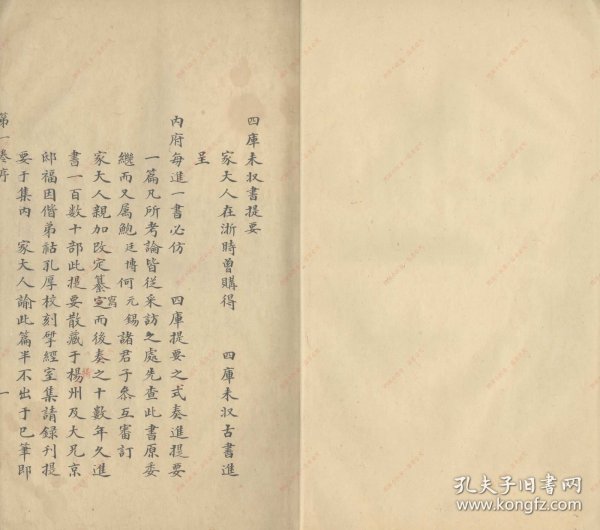 四庫未収書提要
家大人在浙時曾購得　四庫未収古書進
呈
內府每進一書必仿　四庫提要之式奏進提要
一篇凡所考論皆從采訪之處先查此書原委
繼而又属鮑廷博何元錫諸君子叅互審訂
家大人親加改定纂寫而後奏之十數年久進
書一百數十部此提要散藏于楊州及大兄京
邸福因偕弟祜孔厚校刻揅經室集請録刊提
要于集內　家大人諭此篇半不出于己筆即
第一卷序　一
孔夫子旧书网
www.kongfz.com